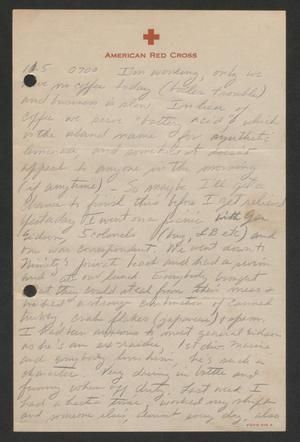 AMERICAN RED CROSS
0700 I'm working, only we
have no coffee today (boiler trouble)
and business is slow. In lieu of
coffee we serve "battery acid" which
is the island name for synthetic
lemonade, and somehow it doesn't
appeal to anyone in the morning
(if anytime) - So maybe I'll get a
chance to finish this before I get relieved
Yesterday I went on a picnic with Gen
5 colonels
one war correspondent. We went down to
Nimitz's private beach and had a swim
and lunch. Everybody brought
what they could steal from their mess &
we had a strange combination of canned
turkey, crab flakes (japanese) & spam.
I had been anxious to meet general
as he's an ex-raider, 1st div. Marine
and everybody loves him, he's such a
character. Very daring in battle and
funny when off duty. Last week I
had a hectic time. Worked my shift
and someone else's, almost every day, also